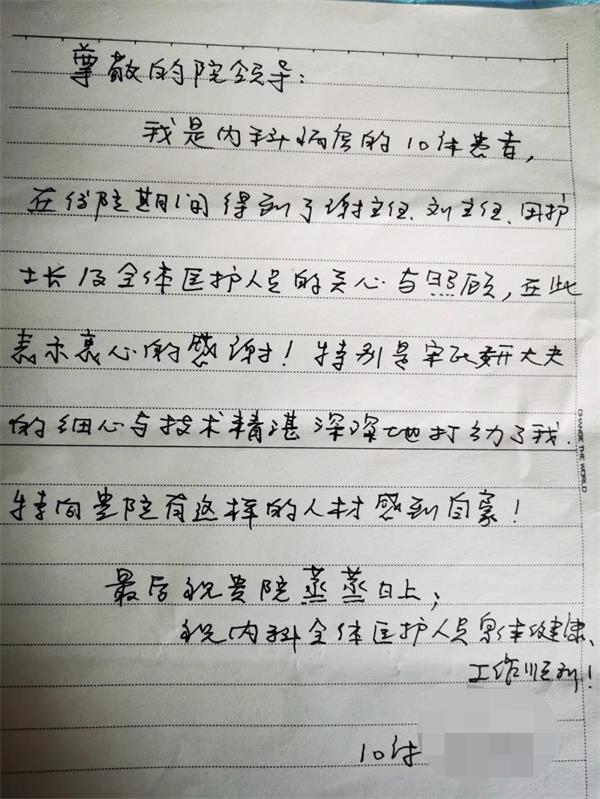 尊敬的院领导:
我是内科病房的10床患者,
在住院期间得到了谢主任、刘主任、田护
士长及全体医护人员的关心与照顾,在此
表示衷心的感谢!特别是宋妍大夫
的细心与技术精湛深深地打动了我.
特向贵院有这样的人材感到自豪!
最后祝贵院蒸蒸日上;
祝内科全体医护人员身体健康、
工作顺利!
10床
CHANGE THE WORLD